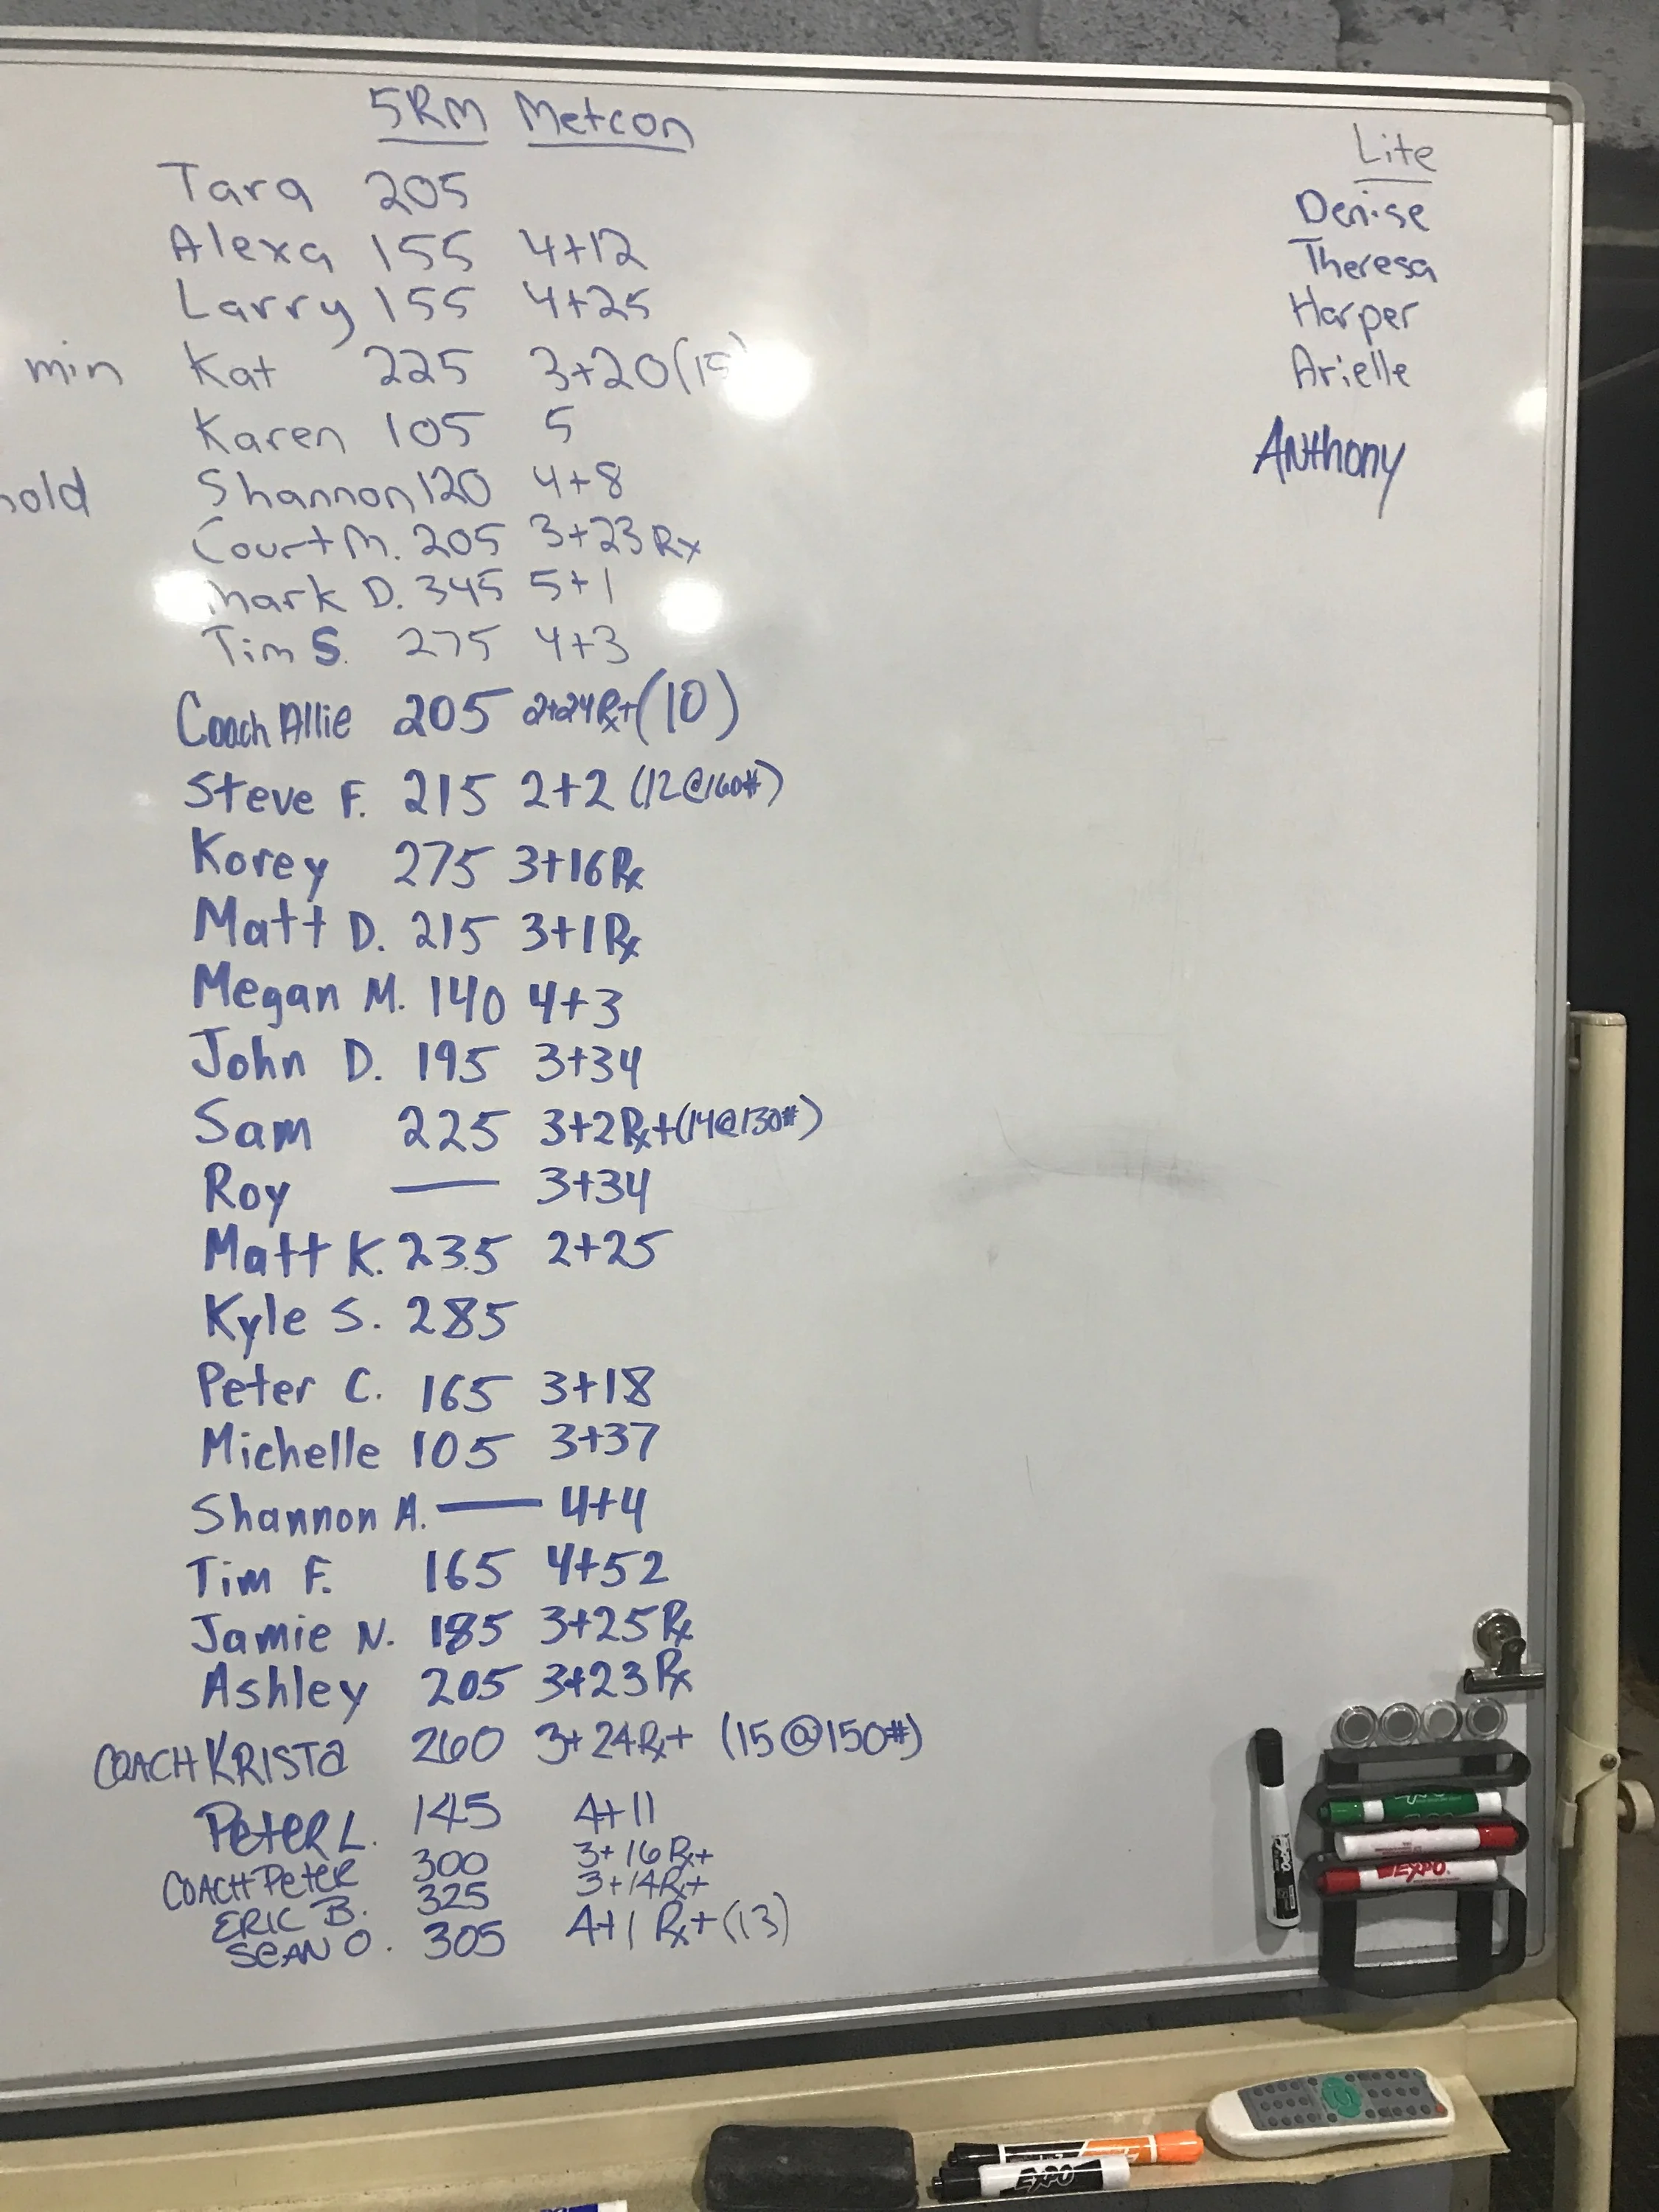 5RM Metcon
Tara 205
Alexa 155 4+12
Larry 155 4+25
min Kat 225 3+20(15)
Karen 105 5
hold Shannon 120 4+8
Court M. 205 3+23 Rx
Mark D. 345 5+1
Tim S. 275 4+3
Coach Allie 205 2+24Rx+(10)
Steve F. 215 2+2 (12@160#)
Korey 275 3+16 Rx
Matt D. 215 3+1 Rx
Megan M. 140 4+3
John D. 195 3+34
Sam 225 3+2Rx+(14@130#)
Roy — 3+34
Matt K. 235 2+25
Kyle S. 285
Peter C. 165 3+18
Michelle 105 3+37
Shannon A. — 4+4
Tim F. 165 4+52
Jamie N. 185 3+25 Rx
Ashley 205 3+23 Rx
COACH KRISTa 260 3+24Rx+ (15@150#)
PeteR L. 145 4+11
COACH PeteR 300 3+16 Rx+
ERIC B. 325 3+14Rx+
SEAN O. 305 4+1 Rx+(13)
Lite
Denise
Theresa
Harper
Arielle
ANthony
EXPO
EXPO
EXPO